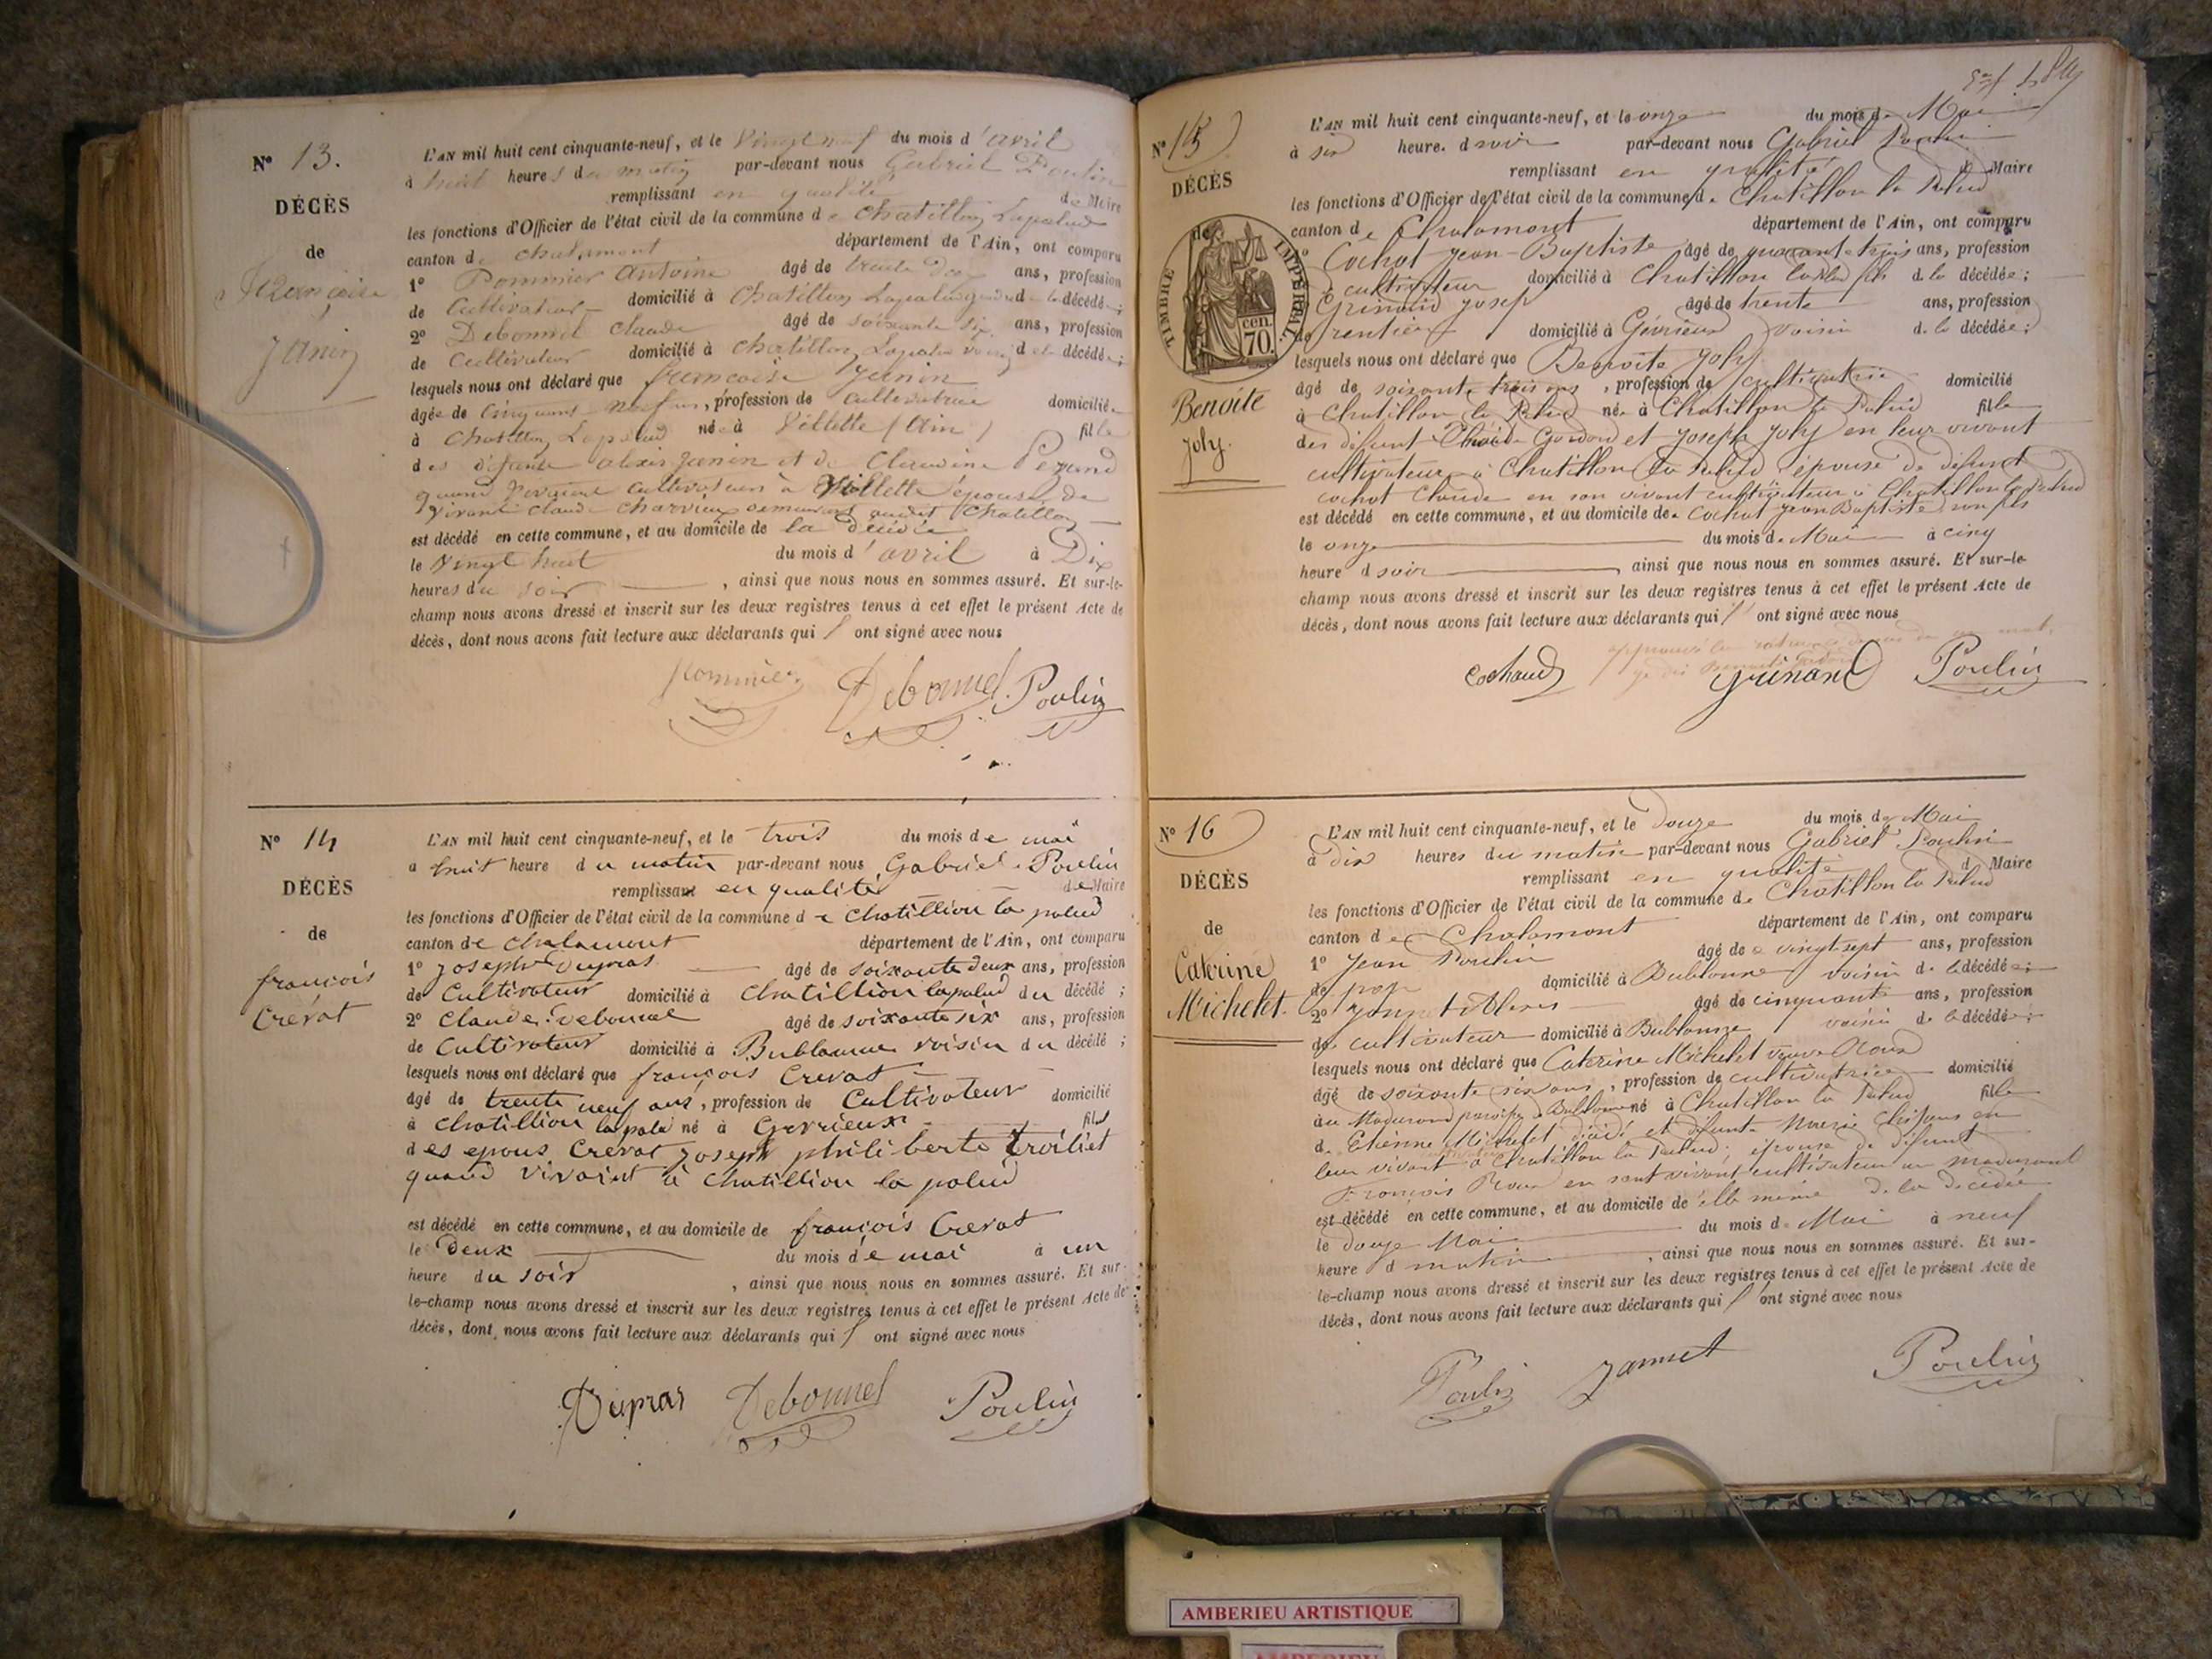 N° 13.
DÉCÈS
de
Françoise
Janin
L'AN mil huit cent cinquante-neuf, et le Vingt neuf du mois d'avril
à huit heures du matin par-devant nous Gabriel Poulin
remplissant en qualité de Maire
les fonctions d'Officier de l'état civil de la commune de Chatillon Lapalud
canton de Chalamont département de l'Ain, ont comparu
1° Pommier Antoine âgé de trente ans, profession
de Cultivateur domicilié à Chatillon Lapalud de la décédée;
2° Debonnel Claude âgé de soixante six ans, profession
de Cultivateur domicilié à Chatillon Lapalud voisin de la décédée;
lesquels nous ont déclaré que françoise Janin
âgée de Cinquante-neuf ans, profession de Cultivatrice domiciliée
à Chatillon Lapalud née à Villette (Ain) fille
des défunts alexis Janin et de Claudine Perand
quand vivaient cultivateurs à Villette épouse de
vivant Claude Charvieux demeurant audit Chatillon
est décédé en cette commune, et au domicile de la décédée
le Vingt huit du mois d'avril à Dix
heures du soir, ainsi que nous nous en sommes assuré. Et sur-le-
champ nous avons dressé et inscrit sur les deux registres tenus à cet effet le présent Acte de
décès, dont nous avons fait lecture aux déclarants qui ont signé avec nous
Pommier Debonnel Poulin
N° 14
DÉCÈS
de
françois
Crevat
L'AN mil huit cent cinquante-neuf, et le trois du mois de mai
a huit heure du matin par-devant nous Gabriel Poulin
remplissant en qualité de Maire
les fonctions d'Officier de l'état civil de la commune de Chatillion la palud
canton de Chalamont département de l'Ain, ont comparu
1° Joseph Dupras âgé de soixante deux ans, profession
de Cultivateur domicilié à Chatillion lapalud du décédé;
2° Claude Debonnel âgé de soixante six ans, profession
de Cultivateur domicilié à Bublanne voisin du décédé;
lesquels nous ont déclaré que françois Crevat
âgé de trente neuf ans, profession de Cultivateur domicilié
à Chatillion la palu né à Gevrieux fils
des epous Crevat Joseph philiberte Troiliet
quand vivaint à Chatillion la palud
est décédé en cette commune, et au domicile de françois Crevat
le Deux du mois de mai à un
heure du soir, ainsi que nous nous en sommes assuré. Et sur-
le-champ nous avons dressé et inscrit sur les deux registres tenus à cet effet le présent Acte de
décès, dont nous avons fait lecture aux déclarants qui ont signé avec nous
Dupras Debonnel Poulin
N° 15
DÉCÈS
de
TIMBRE IMPÉRIAL
cen.
70.
Benoite
Joly.
L'AN mil huit cent cinquante-neuf, et le onze du mois de Mai
à six heure. d soir par-devant nous Gabriel Poulin
remplissant en qualité d Maire
les fonctions d'Officier de l'état civil de la commune de Chatillon la Palud
canton de Chalamont département de l'Ain, ont comparu
Cochat Jean-Baptiste âgé de quarante trois ans, profession
cultivateur domicilié à Chatillon la Palud fils d la décédée;
Grinand Josep âgé de trente ans, profession
de rentier domicilié à Gévrieux voisin d. la décédée;
lesquels nous ont déclaré que Benoite Joly
âgé de soixante trois ans, profession de cultivatrice domicilié
à Chatillon la Palud née à Chatillon la Palud fille
des défunt Gordon et Joseph Joly en leur vivant
cultivateur à Chatillon la Palud épouse de défunt
Cochat Claude en son vivant cultivateur à Chatillon la Palud
est décédé en cette commune, et au domicile de Cochat Jean Baptiste son fils
le onze du mois de Mai à cinq
heure d soir, ainsi que nous nous en sommes assuré. Et sur-le-
champ nous avons dressé et inscrit sur les deux registres tenus à cet effet le présent Acte de
décès, dont nous avons fait lecture aux déclarants qui ont signé avec nous
Cochaud Grinand Poulin
N° 16
DÉCÈS
de
Caterine
Michelet.
L'AN mil huit cent cinquante-neuf, et le douze du mois de Mai
à dix heures du matin par-devant nous Gabriel Poulin
remplissant en qualité d Maire
les fonctions d'Officier de l'état civil de la commune de Chatillon la Palud
canton de Chalamont département de l'Ain, ont comparu
1° Jean Poulin âgé de vingt sept ans, profession
de domicilié à Bublanne voisin de la décédée;
2° âgé de cinquante ans, profession
de cultivateur domicilié à Bublanne voisin de la décédée;
lesquels nous ont déclaré que Caterine Michelet veuve Roux
âgé de soixante six ans, profession de cultivatrice domicilié
né à Chatillon la Palud fille
de Etienne Michelet et défunte Marie en
leur vivant à Chatillon la Palud, épouse de défunt
François Roux en sont vivant cultivateur au
est décédé en cette commune, et au domicile de elle même de la décédée
le douze Mai du mois de Mai à neuf
heure d matin, ainsi que nous nous en sommes assuré. Et sur-
le-champ nous avons dressé et inscrit sur les deux registres tenus à cet effet le présent Acte de
décès, dont nous avons fait lecture aux déclarants qui ont signé avec nous
Poulin Jannet Poulin
AMBERIEU ARTISTIQUE
AMBERIEU